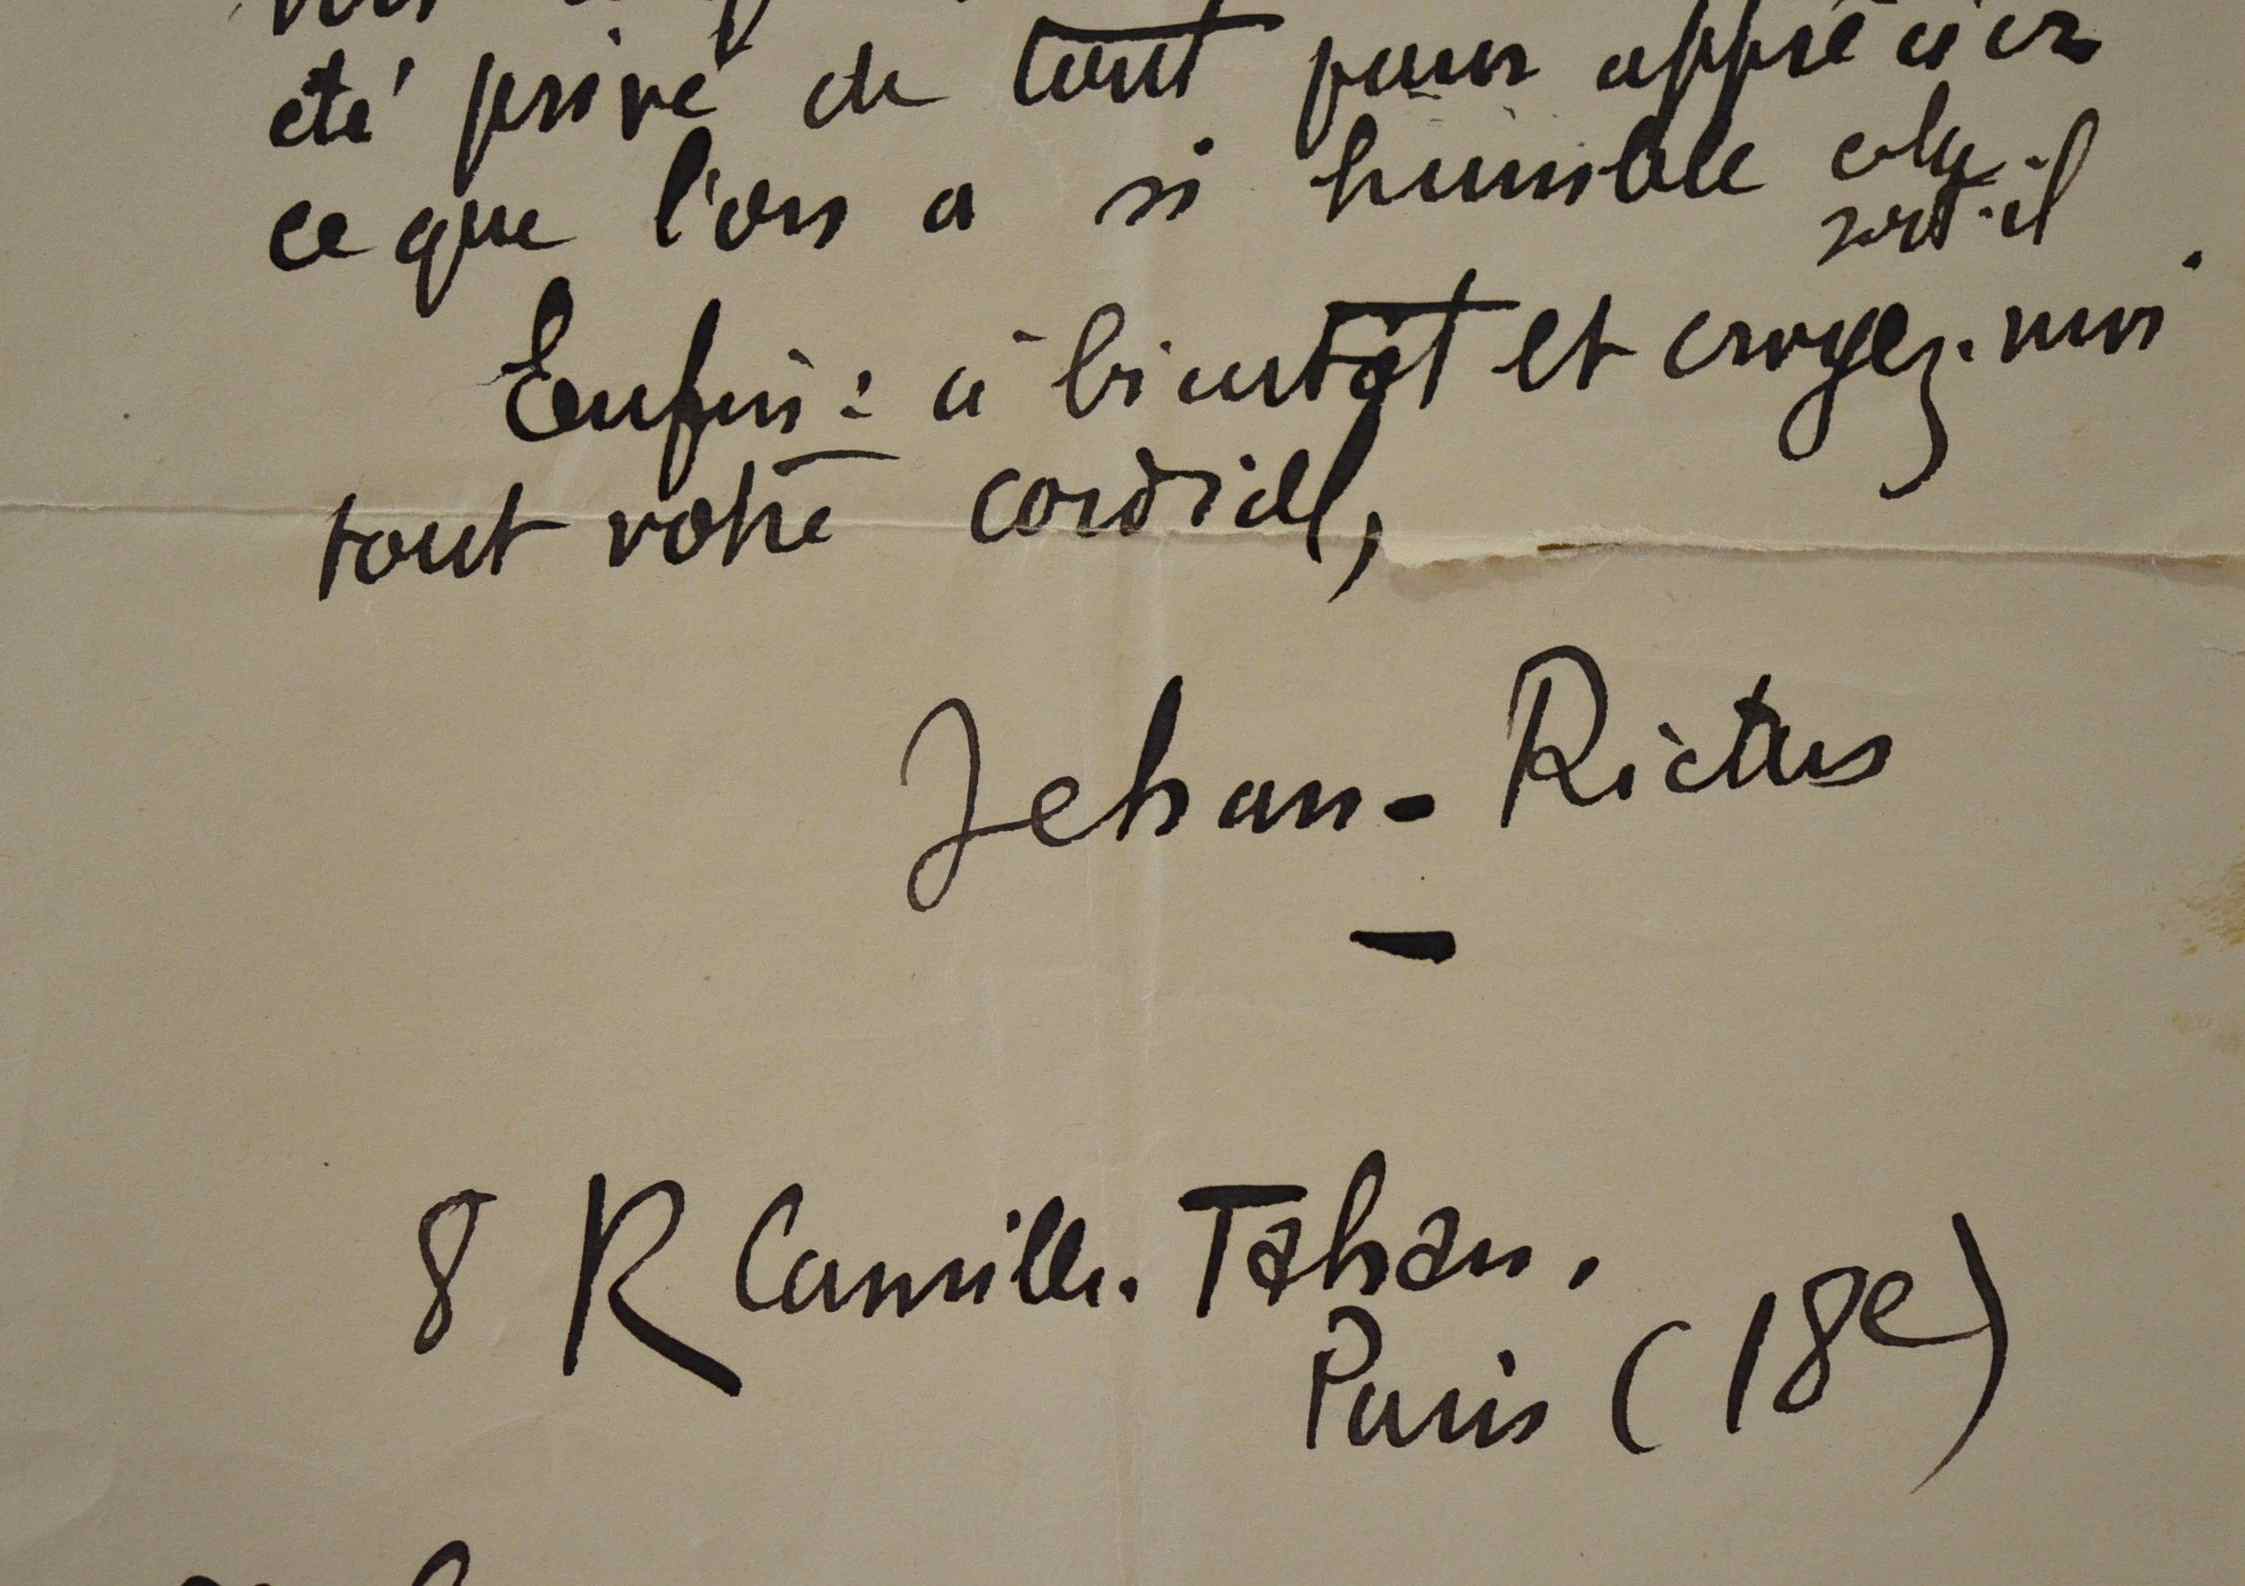 été privé de tout pour apprécier
ce que l'on a si humble cela
soit-il.
Enfin : à bientôt et croyez-moi
tout votre cordial,
Jehan-Rictus
8 R Camille-Tahan.
Paris (18e)